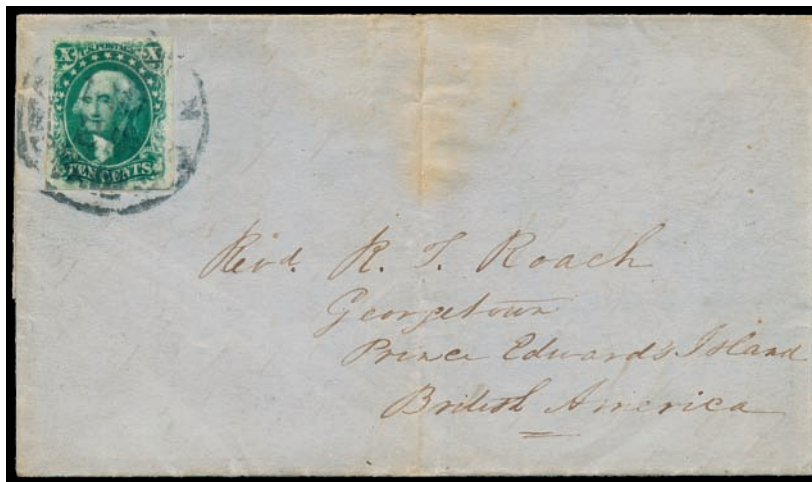 X U.S. POSTAGE X
TEN CENTS
Revd. R. T. Roach
Georgetown
Prince Edward's Island
British America